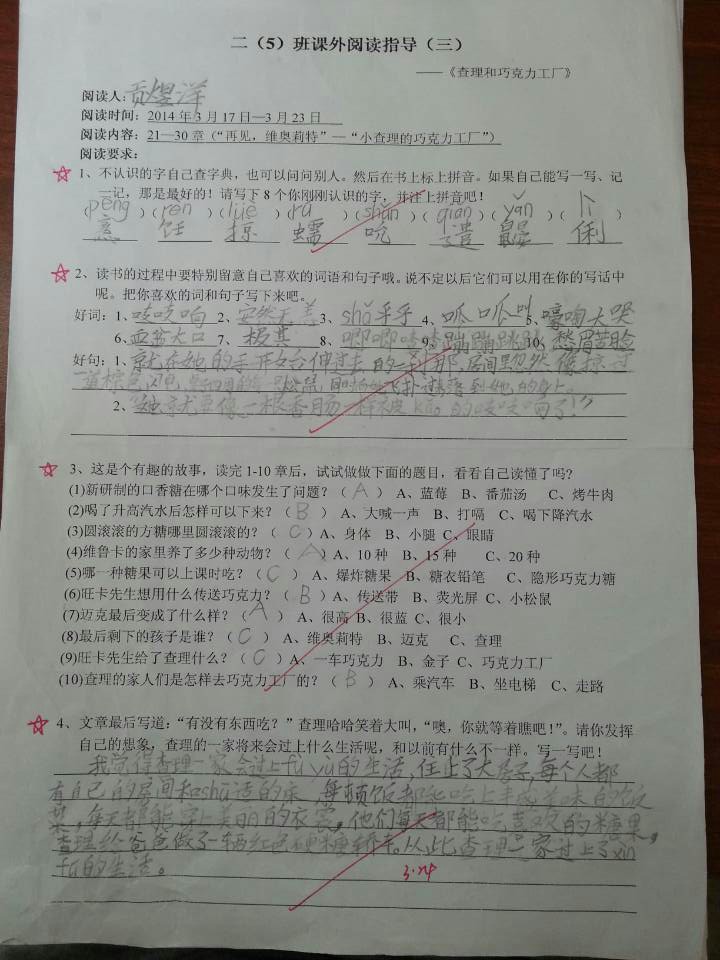 二（5）班课外阅读指导（三）
——《查理和巧克力工厂》
阅读人：贡煜洋
阅读时间：2014年3月17日—3月23日
阅读内容：21—30章（“再见，维奥莉特”—“小查理的巧克力工厂”）
阅读要求：
1、不认识的字自己查字典，也可以问问别人。然后在书上标上拼音。如果自己能写一写、记
一记，那是最好的！请写下8个你刚刚认识的字，并注上拼音吧！
(pēng)(rèn)(lüè)(rú)(shǔn)(qiǎn)(yǎn)(lì)
烹 饪 掠 蠕 吮 遣 鼹 俐
2、读书的过程中要特别留意自己喜欢的词语和句子哦。说不定以后它们可以用在你的写话中
呢。把你喜欢的词和句子写下来吧。
好词：1、吱吱响 2、安然无恙 3、shǎ乎乎 4、呱呱叫 5、嚎啕大哭
6、血盆大口 7、极其 8、唧唧喳喳 9、蹦蹦跳跳 10、愁眉苦脸
好句：1、就在她的手开始伸过去的一刹那，房间里忽然像掠过
一道棕色闪电，
2、“她就要像一根香肠一样被kǎo的吱吱响了！”
3、这是个有趣的故事，读完1-10章后，试试做做下面的题目，看看自己读懂了吗？
(1)新研制的口香糖在哪个口味发生了问题？（ A ） A、蓝莓 B、番茄汤 C、烤牛肉
(2)喝了升高汽水后怎样可以下来？（ B ） A、大喊一声 B、打嗝 C、喝下降汽水
(3)圆滚滚的方糖哪里圆滚滚的？（ C ）A、身体 B、小腿 C、眼睛
(4)维鲁卡的家里养了多少种动物？（ A ）A、10种 B、15种 C、20种
(5)哪一种糖果可以上课时吃？（ C ） A、爆炸糖果 B、糖衣铅笔 C、隐形巧克力糖
(6)旺卡先生想用什么传送巧克力？（ B ）A、传送带 B、荧光屏 C、小松鼠
(7)迈克最后变成了什么样？（ A ） A、很高 B、很蓝 C、很小
(8)最后剩下的孩子是谁？（ C ） A、维奥莉特 B、迈克 C、查理
(9)旺卡先生给了查理什么？（ C ）A、一车巧克力 B、金子 C、巧克力工厂
(10)查理的家人们是怎样去巧克力工厂的？（ B ） A、乘汽车 B、坐电梯 C、走路
4、文章最后写道：“有没有东西吃？”查理哈哈笑着大叫，“噢，你就等着瞧吧！”。请你发挥
自己的想象，查理的一家将来会过上什么生活呢，和以前有什么不一样。写一写吧！
我觉得查理一家会过上fù yù的生活，住上了大房子，每个人都
有自己的房间和shū适的床，每顿饭都能吃上丰盛美味的饭
菜，每天都能穿上美丽的衣裳，他们每天都能吃喜欢的糖果，
查理给爸爸做了一辆红色硬糖轿车。从此，查理一家过上了xìn
fú的生活。
3.24